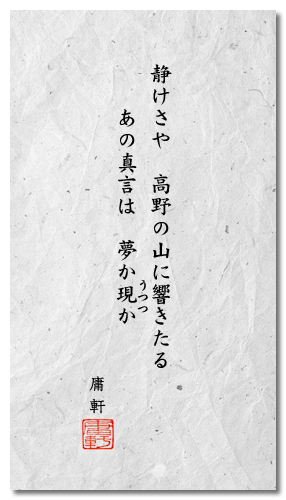 静けさや　高野の山に響きたる
うつつ
あの真言は　夢か現か
庸軒